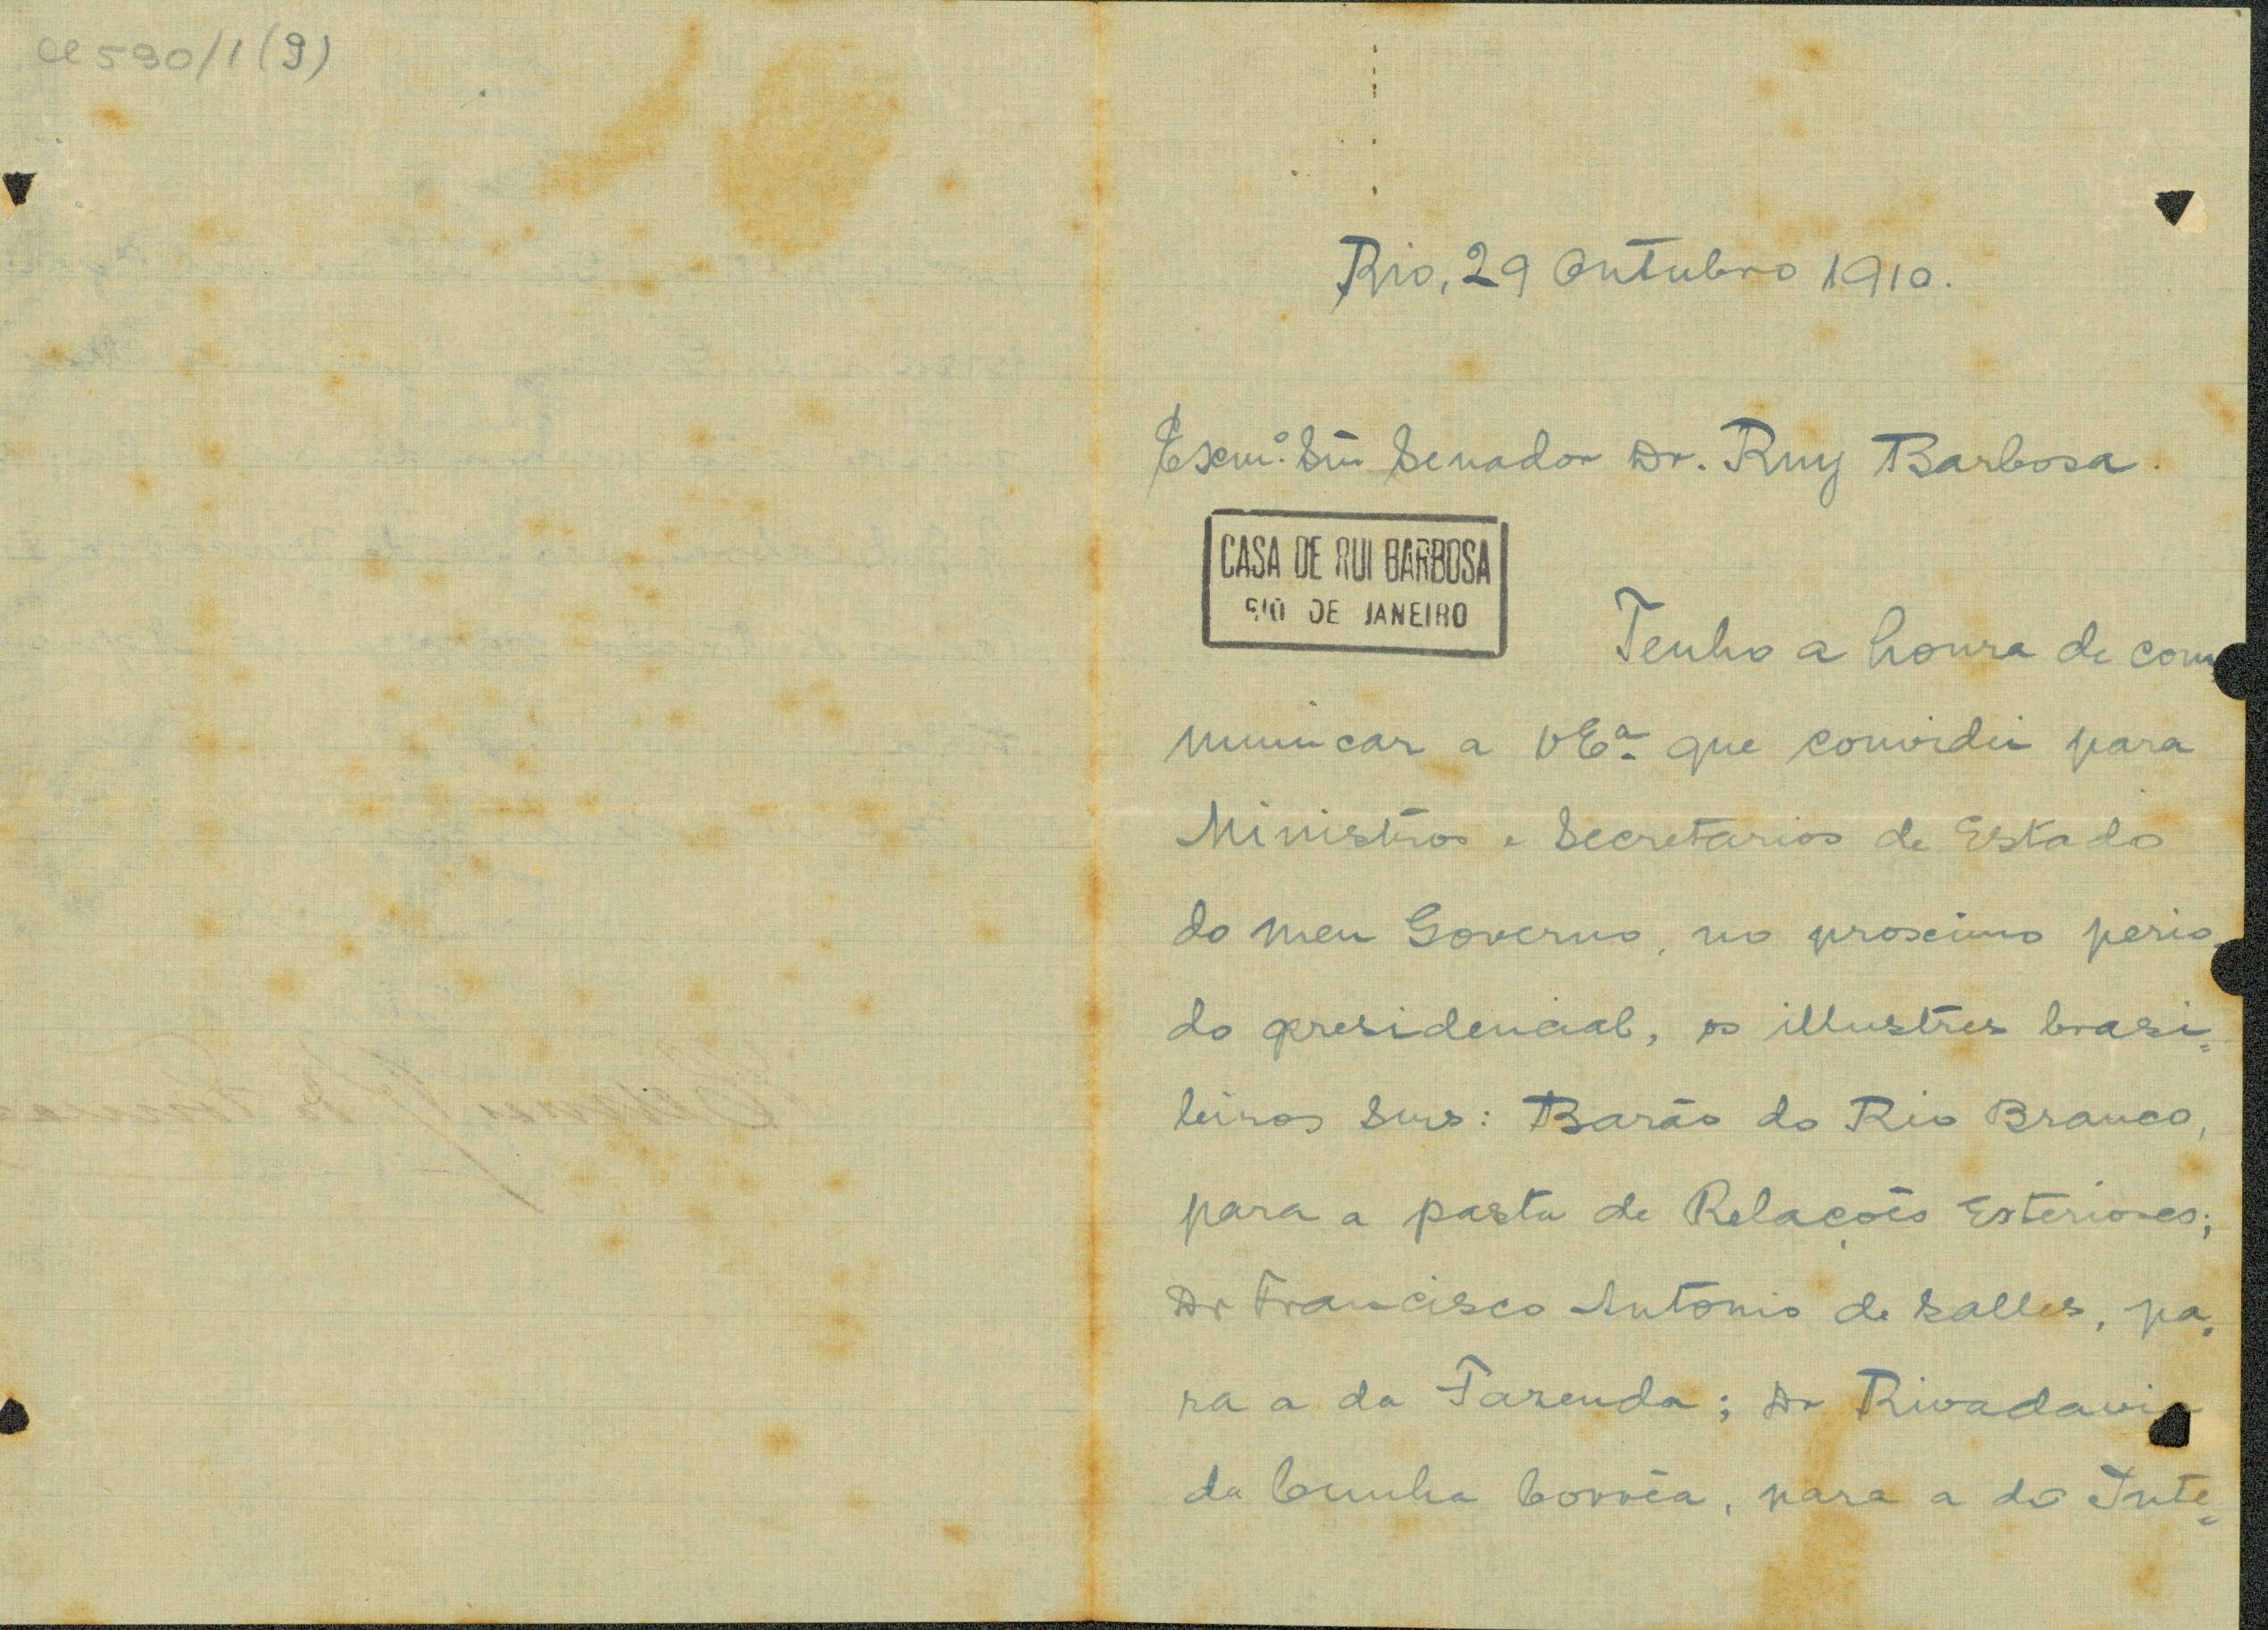 CR 590/1 (9)
Rio, 29 Outubro 1910.
Exmº. Snr. Senador Dr. Ruy Barbosa.
CASA DE RUI BARBOSA
RIO DE JANEIRO
Tenho a honra de com-
municar a V Eª. que convidei para
Ministros e Secretarios de Estado
do meu Governo, no proximo perio-
do presidencial, os illustres brasi-
leiros Snrs: Barão do Rio Branco,
para a pasta de Relações Exteriores;
Dr Francisco Antonio de Salles, pa-
ra a da Fazenda; Dr Rivadavia
da Cunha Corrêa, para a do Inte-